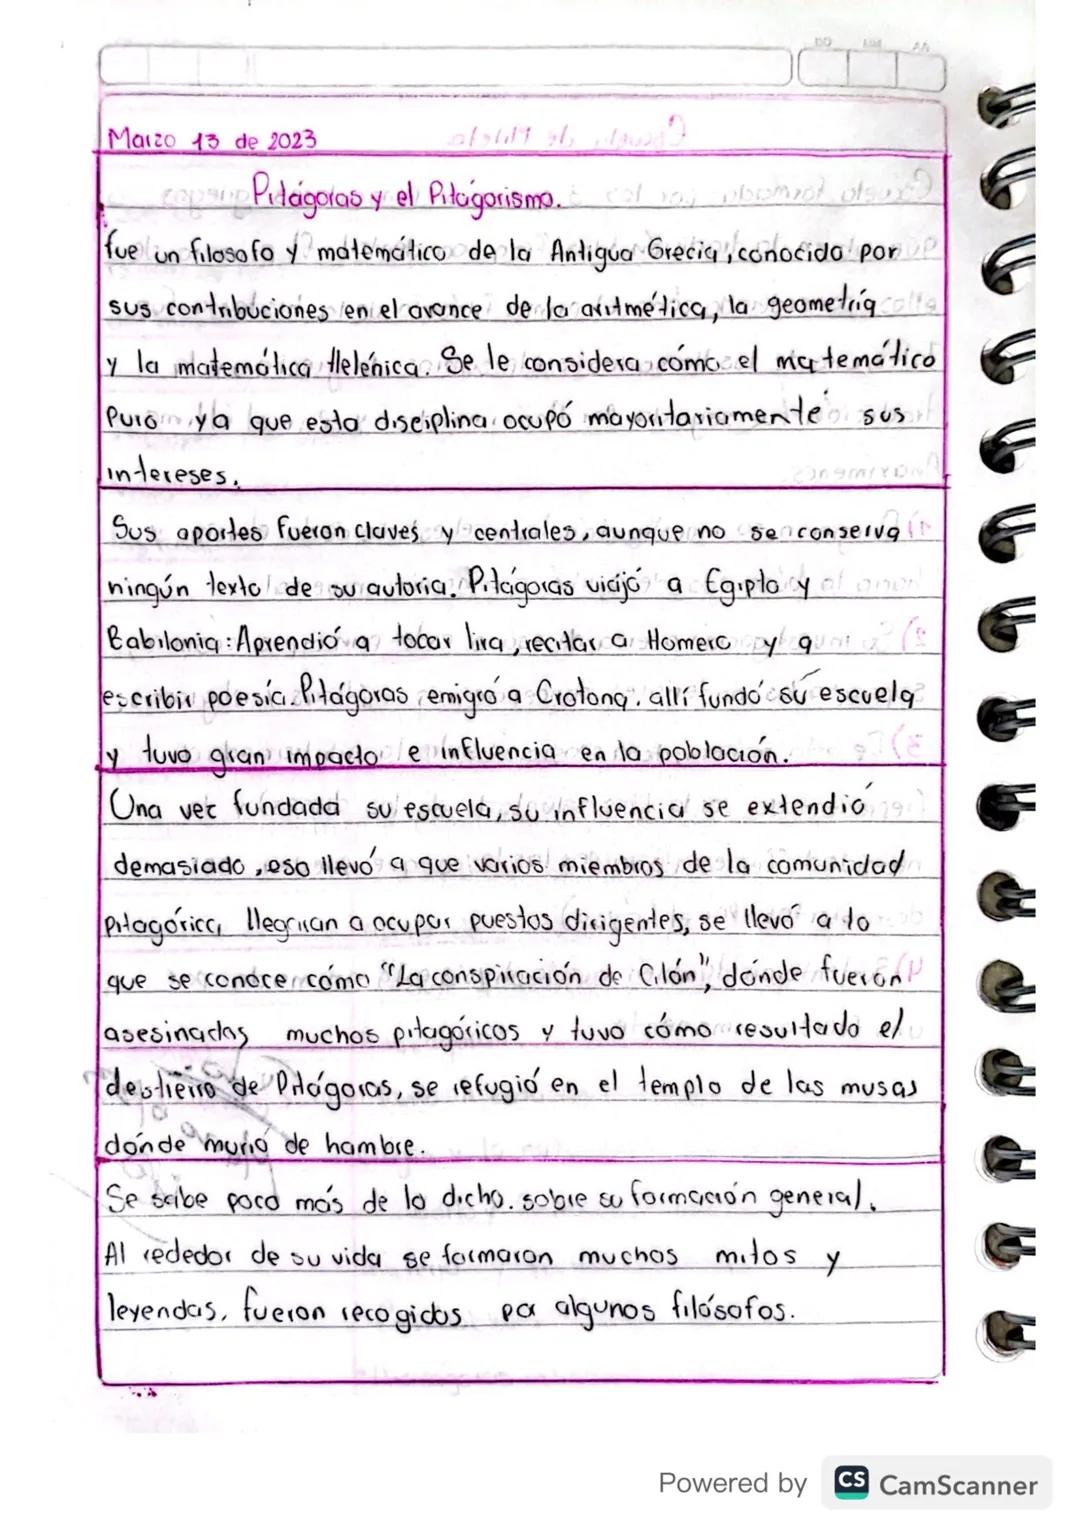 Marzo 13 de 2023
Pitágoras y el Pitagorismo.
fue un filosofo y matemático de la Antigua Grecia, conocido por
sus contribuciones en el avance de la aritmética, la geometría
y la matemática Helénica. Se le considera cómo el matemático
Puro ya que esta disciplina ocupó mayoritariamente sus
intereses.
Sus aportes fueron claves y centrales, aunque no se conserva
ningún texto de su autoria. Pitágoras viajó a Egipto y
Babilonia: Aprendió a tocar lira, recitar a Homero y a
escribir poesía. Pitágoras emigró a Crotona. allí fundó su escuela
y tuvo gran impacto e influencia en la población.
Una vez fundada su escuela, su influencia se extendió
demasiado, eso llevó a que varios miembros de la comunidad
Pitagórica, llegaran a ocupar puestos dirigentes, se llevó a lo
que se conoce cómo "La conspiración de Cilón", dónde fueron
asesinados muchos pitagóricos y tuvo cómo resultado el
destierro de Pitágoras, se refugió en el templo de las musas
dónde murió de hambre.
Se sabe poco más de lo dicho. sobre su formación general.
Al rededor de su vida se formaron muchos mitos y
leyendas, fueron recogidos por algunos filósofos.
Powered by CS CamScanner